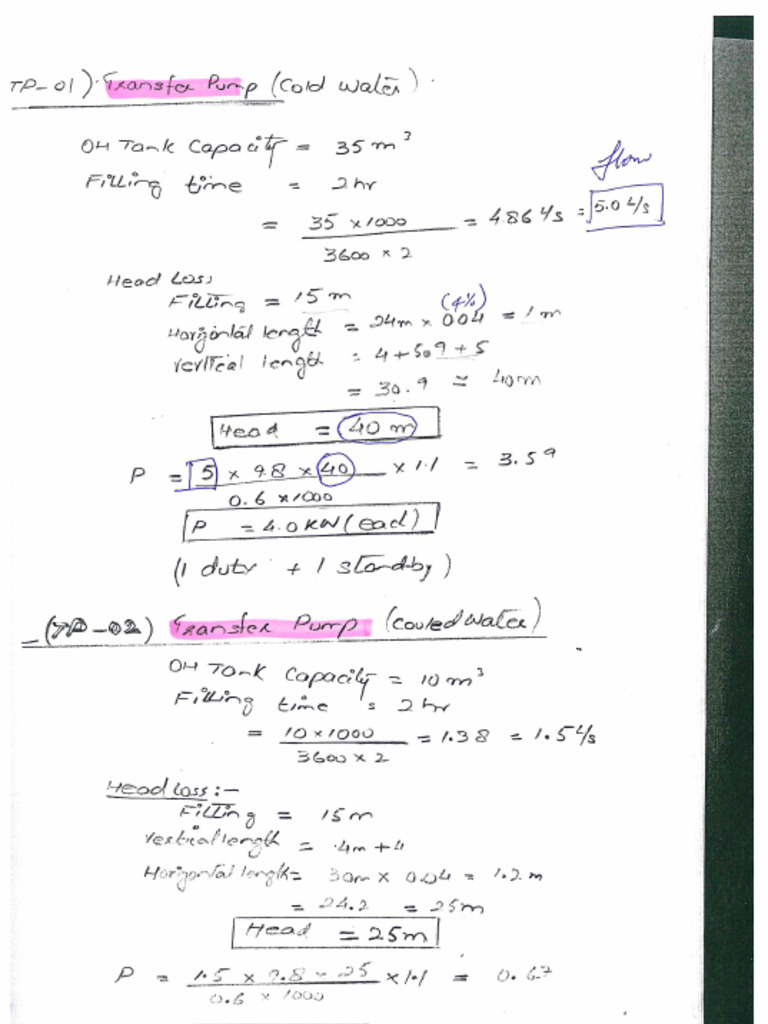 TP-01) Transfer Pump (Cold Water)
OH Tank Capacity = 35 m³
Filling time = 2 hr
flow
= 35 x 1000 / 3600 x 2 = 4.86 L/s = 5.0 L/s
Head Loss
Filling = 15 m
(4%)
Horizontal length = 24m x 0.04 = 1 m
Vertical length = 4 + 5.9 + 5
= 30.9 = 40m
Head = 40 m
P = 5 x 9.8 x 40 / 0.6 x 1000 x 1.1 = 3.59
P = 4.0 KW (each)
(1 duty + 1 standby)
(TP-02) Transfer Pump (Cooled Water)
OH Tank Capacity = 10 m³
Filling time = 2 hr
= 10 x 1000 / 3600 x 2 = 1.38 = 1.5 L/s
Head Loss :-
Filling = 15 m
Vertical length = 4m + 4
Horizontal length = 30m x 0.04 = 1.2 m
= 24.2 = 25m
Head = 25m
P = 1.5 x 9.8 x 25 / 0.6 x 1000 x 1.1 = 0.67